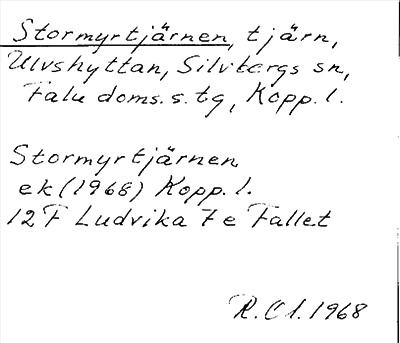 Stormyrtjärnen, tjärn,
Ulvshyttan, Silvbergs sn,
Falu doms. s. tg, Kopp. l.
Stormyrtjärnen
ek (1968) Kopp. l.
12 F Ludvika 7 e Fallet
R. Cl. 1968